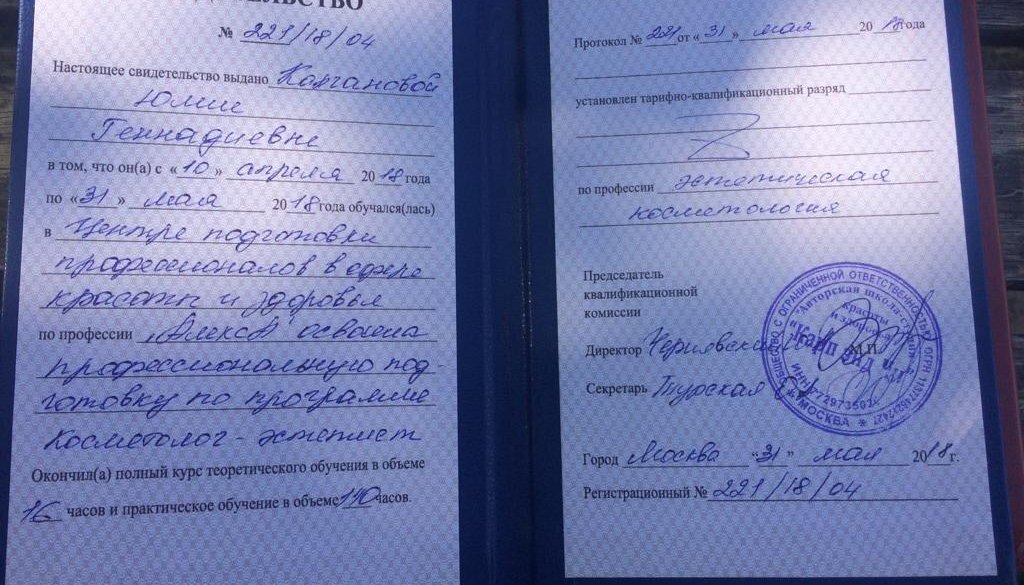 № 221/18/04
Настоящее свидетельство выдано Колгановой
Юлие
Геннадиевне
в том, что он(а) с «10» апреля 2018 года
по «31» мая 2018 года обучался(лась)
в Центре подготовки
профессионалов в сфере
красоты и здоровье
по профессии "Алекса" освоила
профессиональную под-
готовку по программе
Косметолог-эстетист
Окончил(а) полный курс теоретического обучения в объеме
16 часов и практическое обучение в объеме 110 часов.
Протокол № 221 от «31» мая 2018 года
установлен тарифно-квалификационный разряд
по профессии эстетическая
косметология
Председатель
квалификационной
комиссии
Директор Чернявский М.П.
Секретарь Турская
ОБЩЕСТВО С ОГРАНИЧЕННОЙ ОТВЕТСТВЕННОСТЬЮ
"Авторская школа-
красоты
и здоровья
МОСКВА
Город Москва «31» мая 2018 г.
Регистрационный № 221/18/04